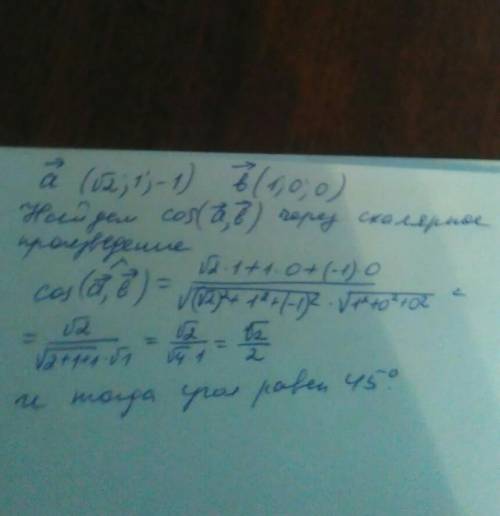 a⃗ (√2; 1; -1) b⃗ (1; 0; 0)
Найдем cos(a⃗, b⃗) через скалярное
произведение
cos(a⃗, b⃗) = (√2·1+1·0+(-1)·0) / (√((√2)²+1²+(-1)²) · √(1²+0²+0²)) =
= √2 / (√(2+1+1)·√1) = √2 / (√4·1) = √2/2
и тогда угол равен 45°.